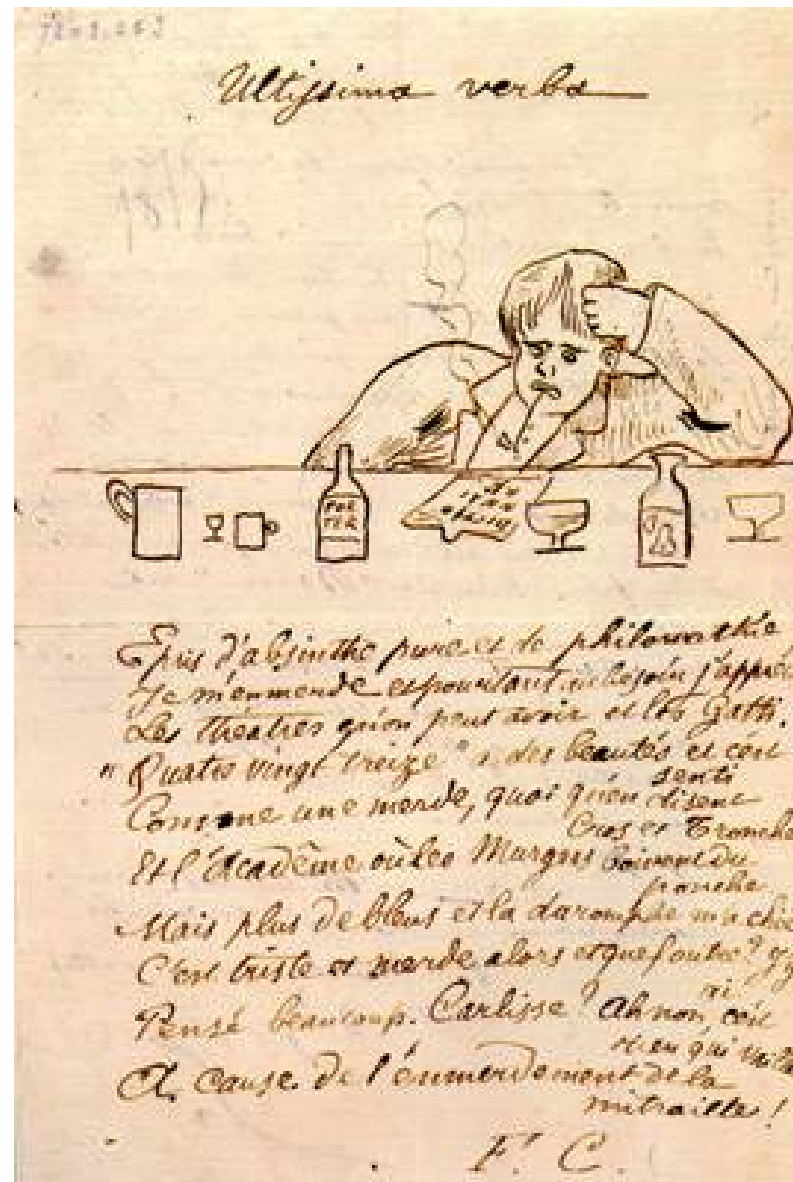 Ultissima verba
POR
TER
Epris d'absinthe pure et de philomathie
Je m'emmerde et pourtant au besoin j'appréc
Les théâtres qu'on peut avoir et les Gatti.
"Quatre vingt treize" a des beautés et c'est
senti
Comme une merde, quoi qu'en disent
Cros et Tronche
Et l'Acadême où les Murgers boivent du
ponche
Mais plus de bleus et la daromphe m'a chié
C'est triste et merde alors et que foutre? J'y
ai
Pensé beaucoup. Carlisse? Ah non, c'est
rien qui vaille
A cause de l'emmerdement de la
mitraille!
F. C.